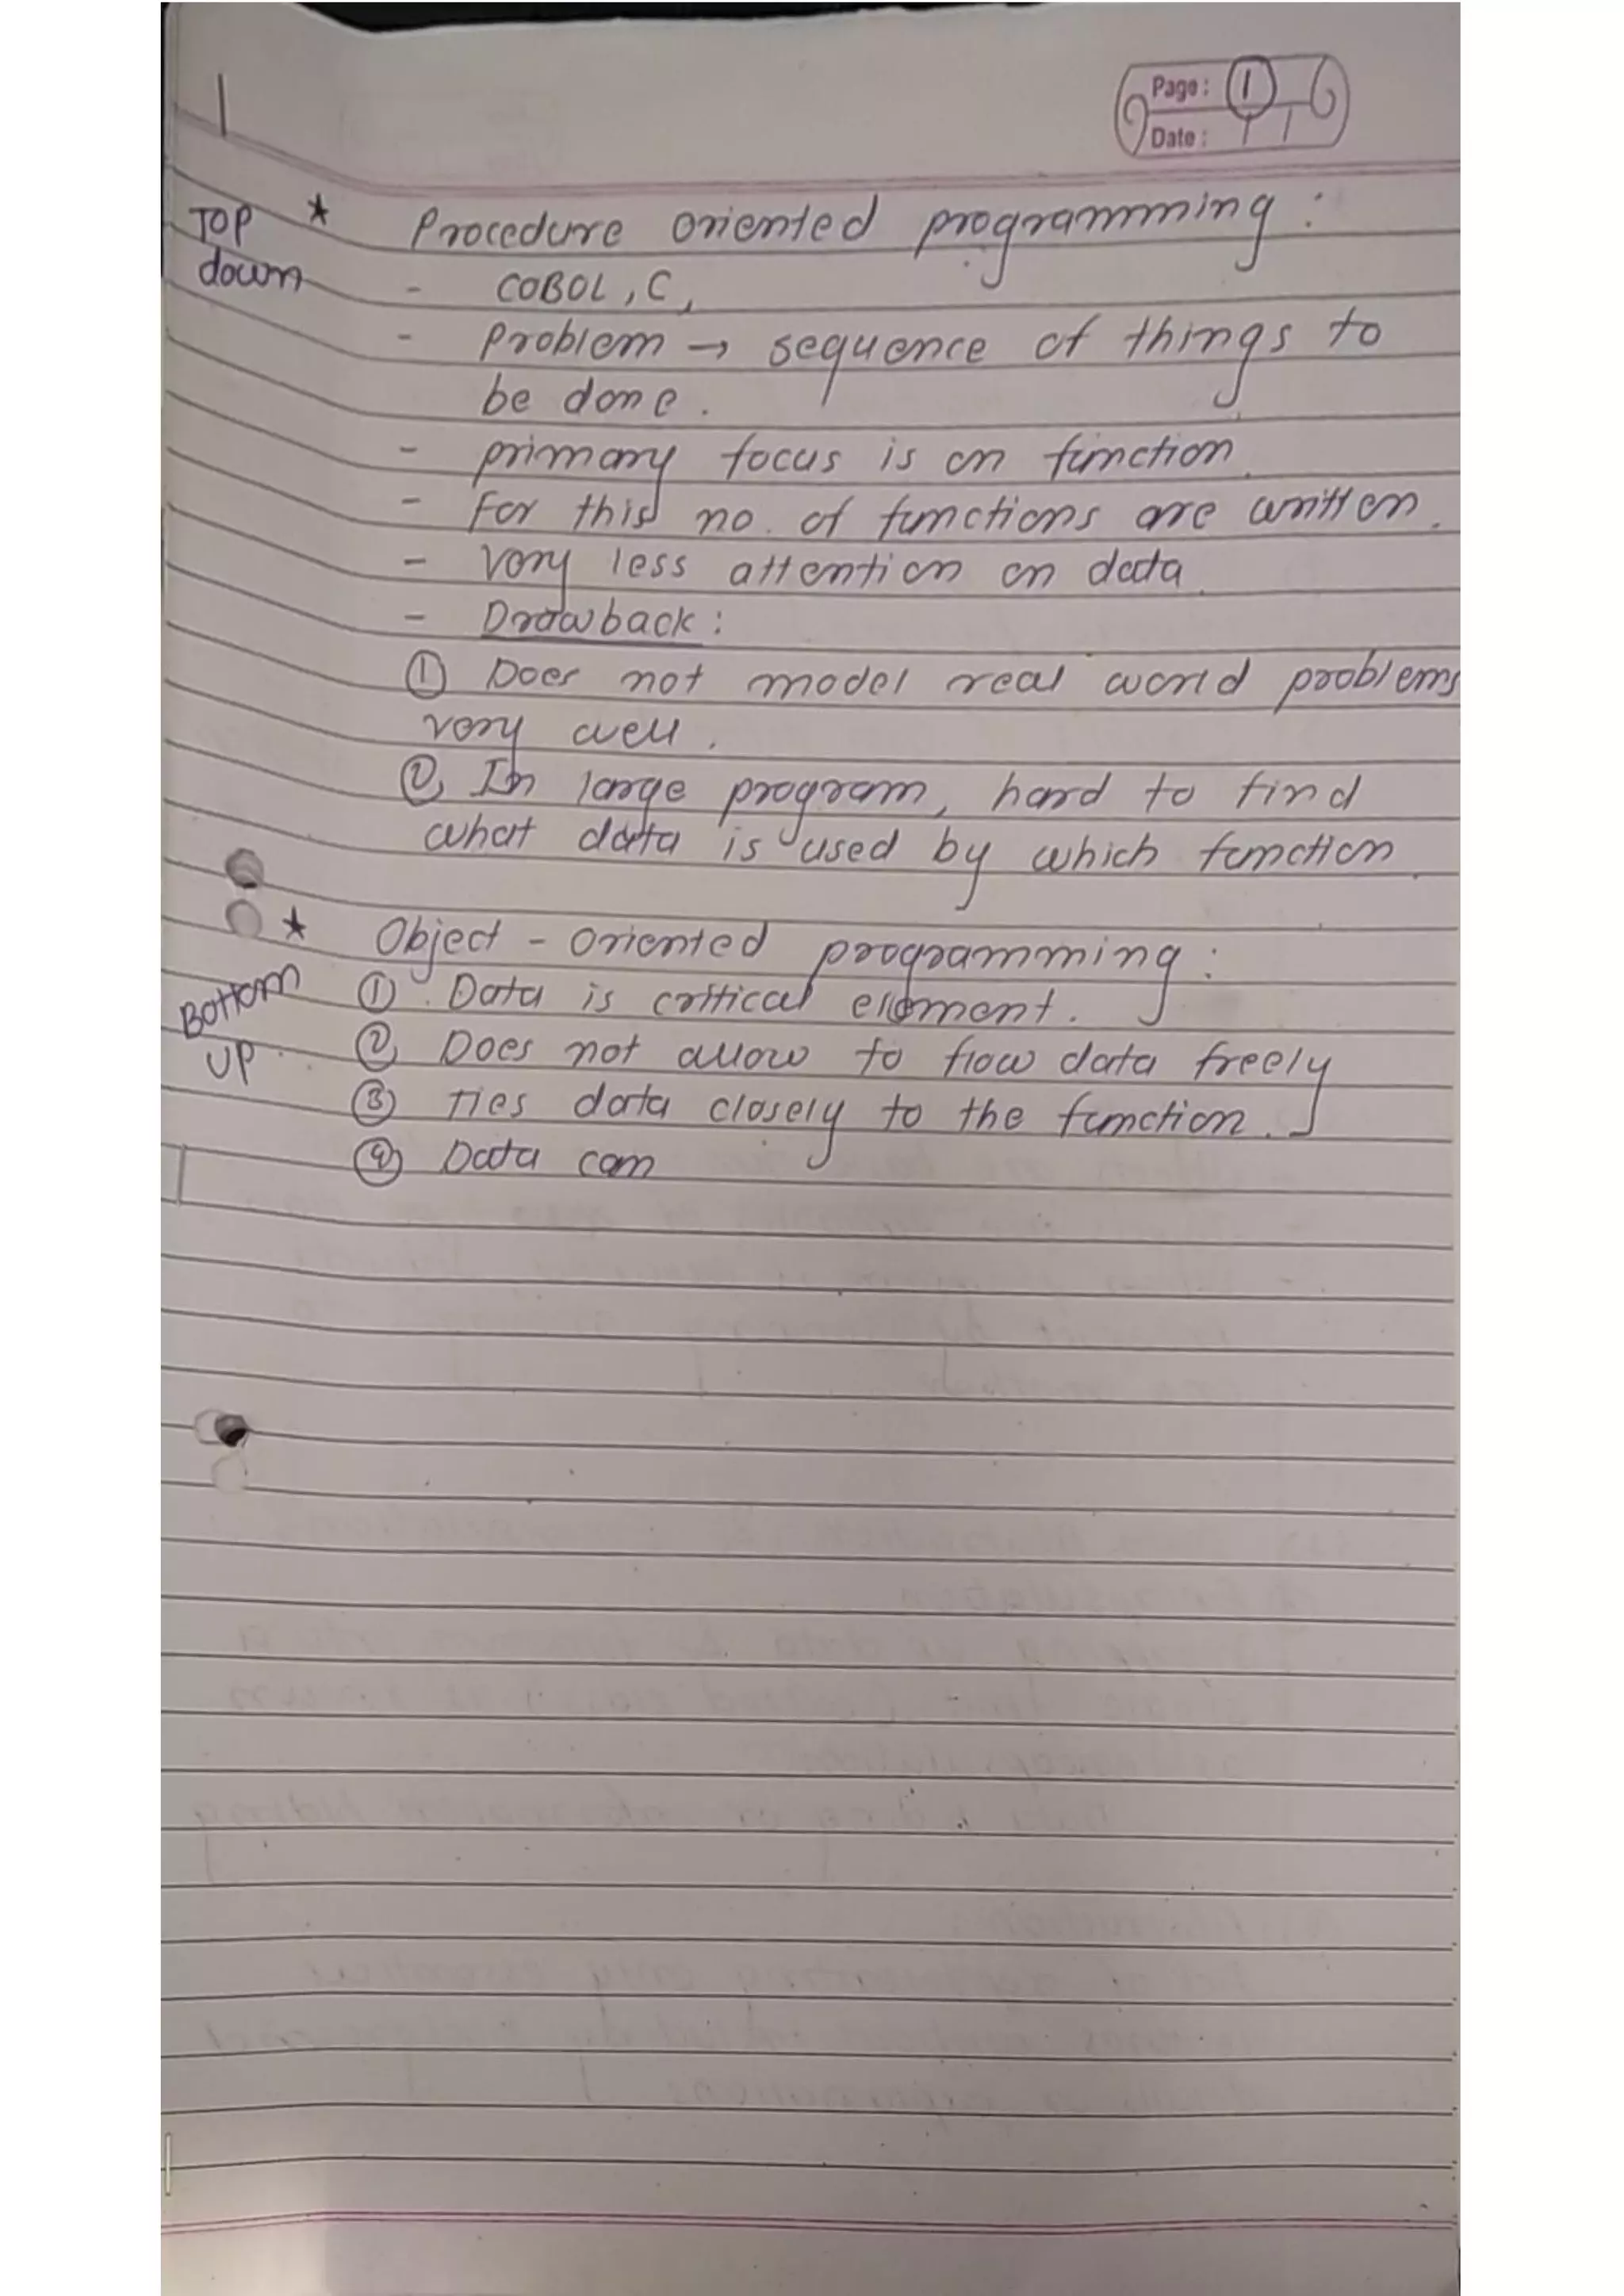 Page: 1
Date:
TOP down
* Procedure oriented programming:
- COBOL, C,
- Problem → sequence of things to
be done.
- primary focus is on function.
- For this no. of functions are written.
- Very less attention on data.
- Drawback:
① Does not model real world problems
very well.
② In large program, hard to find
what data is used by which function.
* Object-oriented programming:
Bottom UP
① Data is critical element.
② Does not allow to flow data freely
③ Ties data closely to the function.
④ Data can